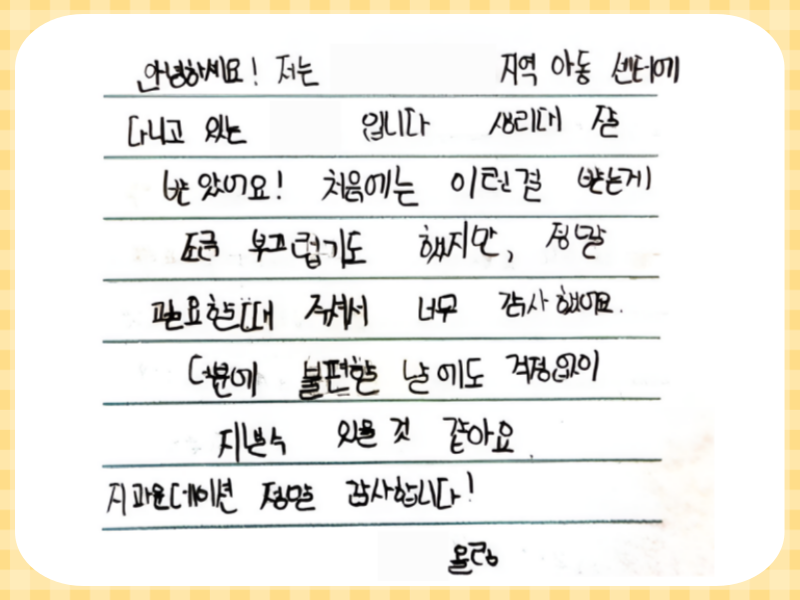 안녕하세요! 저는 지역 아동 센터에
다니고 있는 입니다 생리대 잘
받았어요! 처음에는 이런걸 받는게
조금 부끄럽기도 했지만, 정말
필요할때 주셔서 너무 감사했어요.
덕분에 불편한 날에도 걱정없이
지낼수 있을 것 같아요.
지파운데이션 정말 감사합니다!
올림